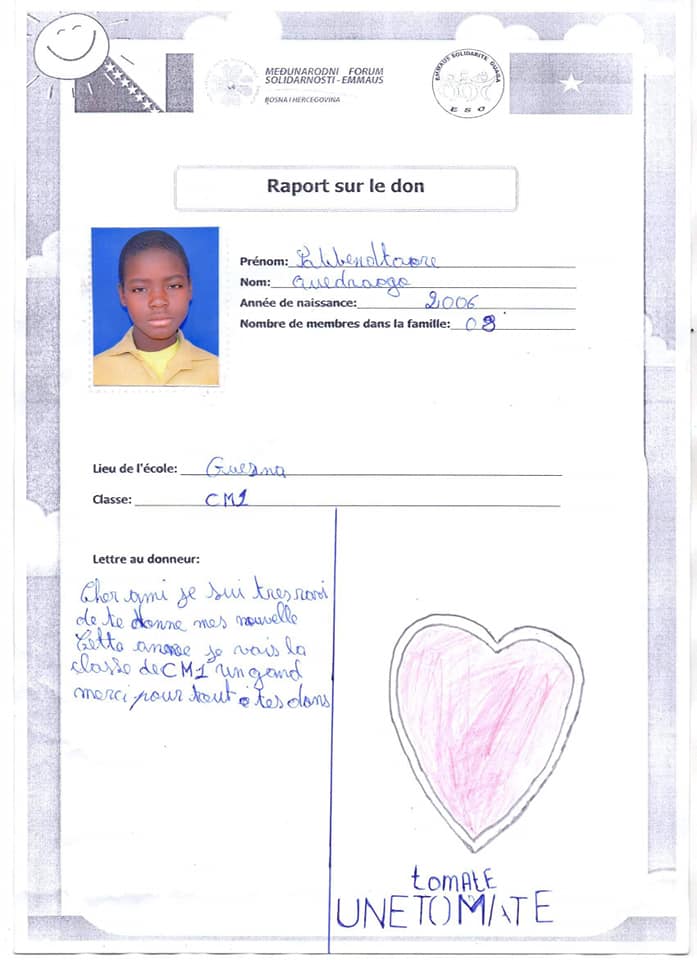 MEĐUNARODNI FORUM
SOLIDARNOSTI-EMMAUS
BOSNA I HERCEGOVINA
EMMAUS SOLIDARITE OUAGA
E S O
Raport sur le don
Prénom:
Nom: Ouedraogo
Année de naissance: 2006
Nombre de membres dans la famille: 08
Lieu de l'école: Guesna
Classe: CM1
Lettre au donneur:
Cher ami je sui tres ravi
de te donne mes nouvelle
Cette annee je vais la
classe de CM1 un gand
merci pour tout tes dons
tomATE
UNE TOMATE